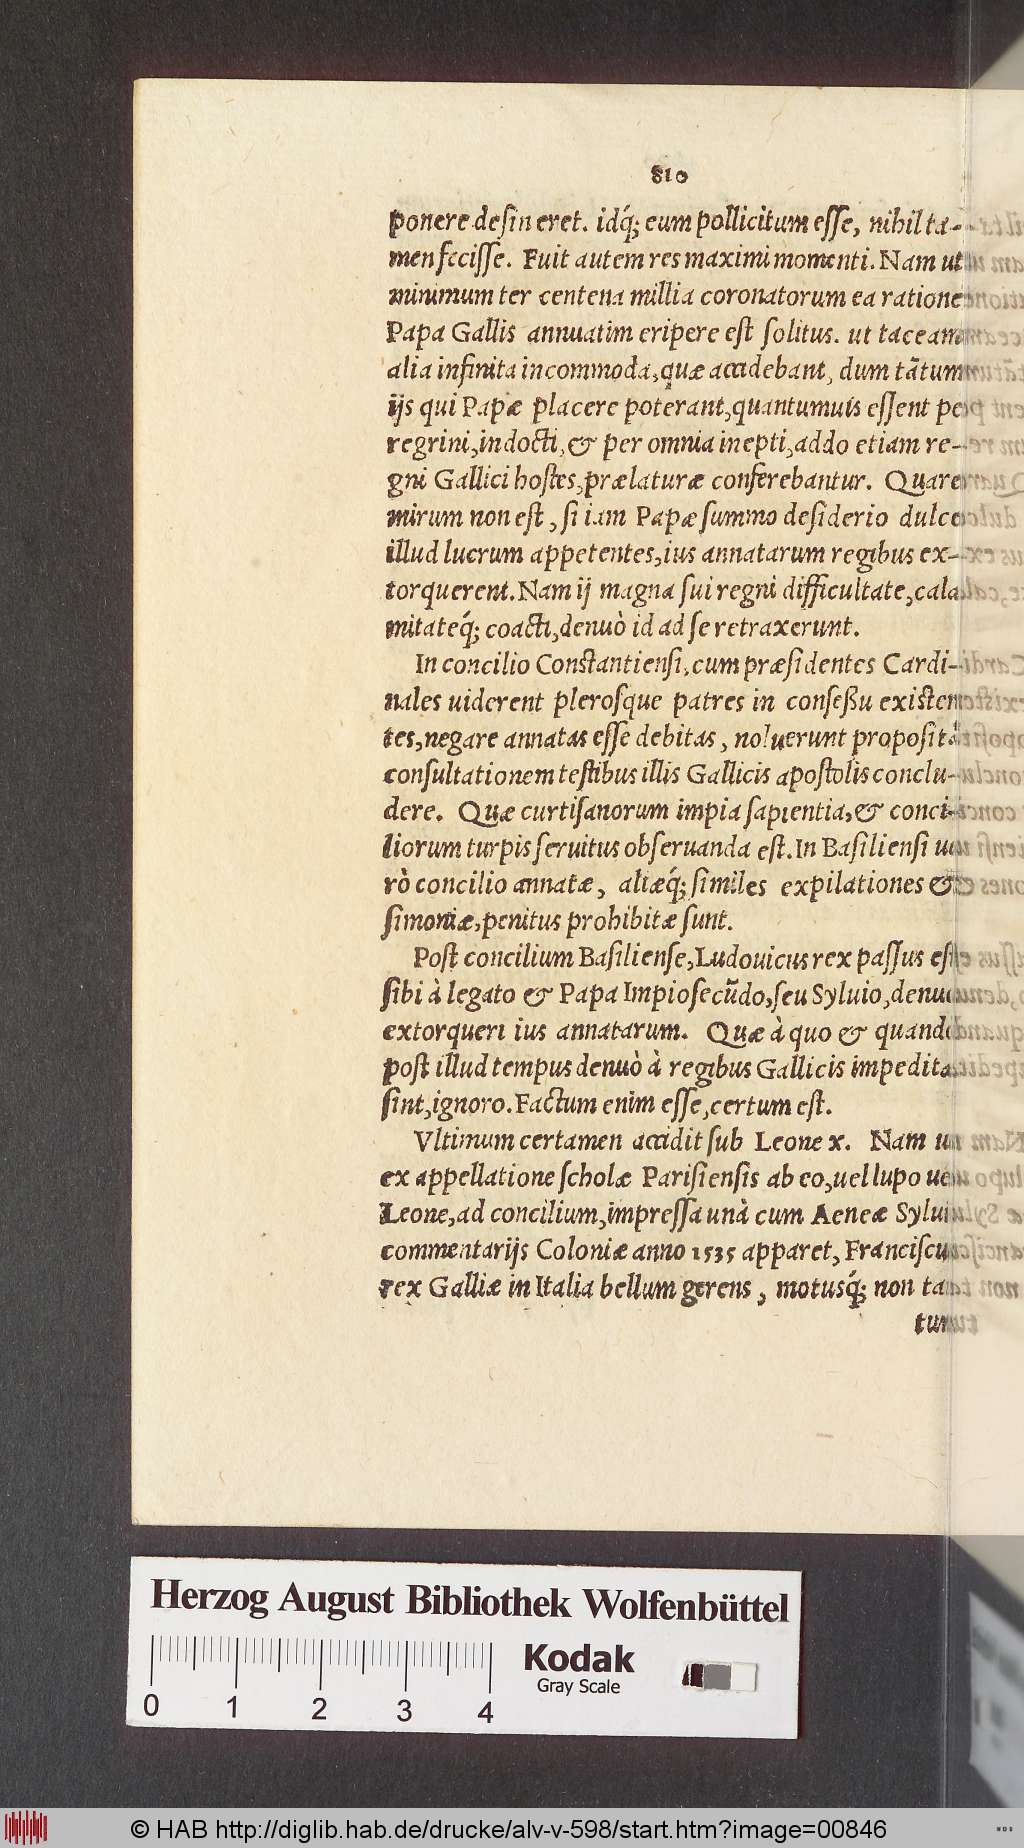 810
ponere desineret. idq́; eum pollicitum esse, nihil ta-
men fecisse. Fuit autem res maximi momenti. Nam ut
minimum ter centena millia coronatorum ea ratione
Papa Gallis annuatim eripere est solitus. ut taceam
alia infinita incommoda, quæ accidebant, dum tãtum
ijs qui Papæ placere poterant, quantumuis essent pe
regrini, indocti, & per omnia inepti, addo etiam re-
gni Gallici hostes, prælaturæ conferebantur. Quare
mirum non est, si iam Papæ summo desiderio dulce
illud lucrum appetentes, ius annatarum regibus ex-
torquerent. Nam ij magna sui regni difficultate, cala
mitateq́; coacti, denuò id ad se retraxerunt.
In concilio Constantiensi, cum præsidentes Cardi-
nales uiderent plerosque patres in conseßu existen
tes, negare annatas esse debitas, noluerunt propositã
consultationem testibus illis Gallicis apostolis conclu-
dere. Quæ curtisanorum impia sapientia, & conci-
liorum turpis seruitus obseruanda est. In Basiliensi ue
rò concilio annatæ, aliæq́; similes expilationes &
simoniæ, penitus prohibitæ sunt.
Post concilium Basiliense, Ludouicus rex passus est
sibi à legato & Papa Impio secũdo, seu Syluio, denuo
extorqueri ius annatarum. Quæ à quo & quando
post illud tempus denuò à regibus Gallicis impedita
sint, ignoro. Factum enim esse, certum est.
Vltimum certamen accidit sub Leone x. Nam ut
ex appellatione scholæ Parisiensis ab eo, uel lupo uel
Leone, ad concilium, impressa unà cum Aeneæ Syluij
commentarijs Coloniæ anno 1535 apparet, Franciscus
rex Galliæ in Italia bellum gerens, motusq́; non tan
tum
Herzog August Bibliothek Wolfenbüttel
Kodak
Gray Scale
0 1 2 3 4
© HAB http://diglib.hab.de/drucke/alv-v-598/start.htm?image=00846